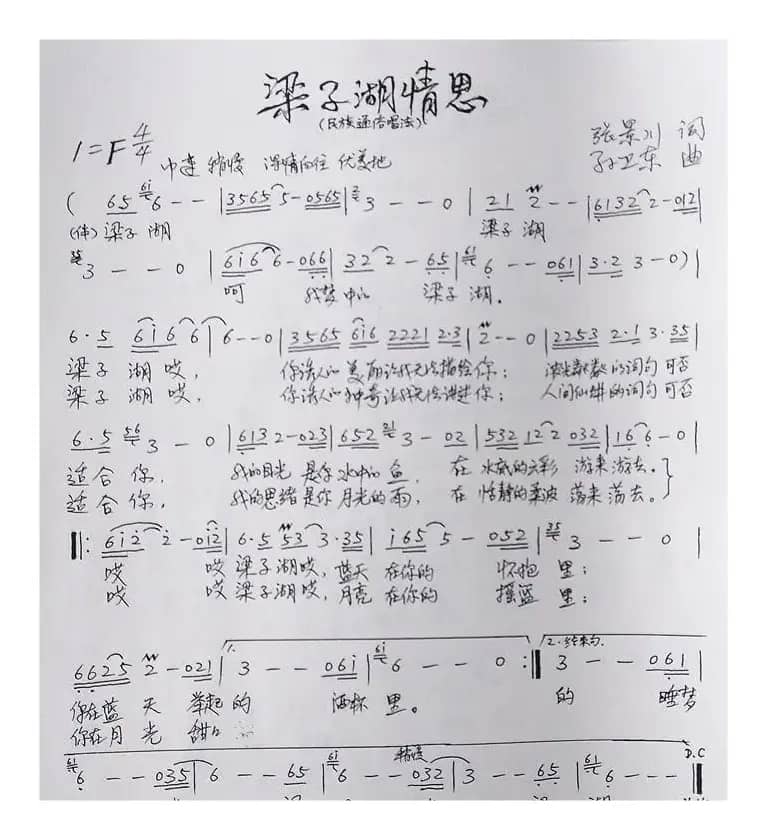 梁子湖情思
(民族通俗唱法)
1=F 4/4 中速 稍慢 深情向往 优美地
张景川 词
孙卫东 曲
( 65 6i 6 - - | 3565 5 - 0565 | 2 3 - - 0 | 21 2 - - | 6132 2 - 012 |
(伴) 梁子湖 梁子湖
3 - - 0 | 6i6 6 - 066 | 32 2 - 65 | 61 6 - - 061 | 3·2 3 - 0 ) |
呵 我梦中的 梁子湖.
6·5 6i6 6 | 6 - - 0 | 3565 6i6 2221 2·3 | 2 - - 0 | 2253 2·1 3·35 |
梁子湖哎, 你诱人的美丽让我无法描绘你; 的词句可否
梁子湖哎, 你诱人的神奇让我无法讲述你; 人间仙境的词句可否
6·5 56 3 - 0 | 6132 2 - 023 | 652 21 3 - 02 | 532 12 2 032 | 16 6 - 0 |
适合你, 我的目光是你水中的鱼, 在水底的云彩 游来游去.
适合你, 我的思绪是你月光的雨, 在恬静的柔波 荡来荡去.
‖: 6i2 2 - 0i2 | 6·5 53 3·35 | i65 5 - 052 | 35 3 - - 0 |
哎 哎梁子湖哎, 蓝天在你的 怀抱里;
哎 哎梁子湖哎, 月亮在你的 摇篮里;
6625 2 - 021 | 1. 3 - - 06i | 6i 6 - - 0 :‖ 2.结束句. 3 - - 061 |
你在蓝天 举起的 酒杯里。 的 睡梦
你在月光 甜
61 6 - - 035 | 6 - - 65 | 6i 6 - - 032 | 3 - - 65 | 61 6 - - - ‖
稍慢 D.C